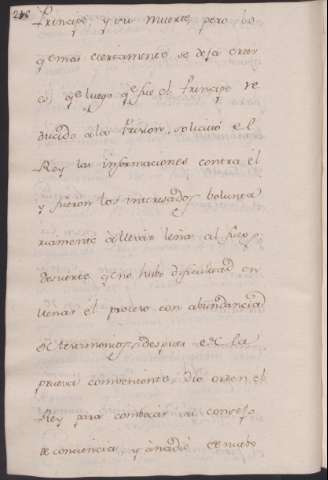 Principe, y su muerte, pero lo
q.e mas ciertamente se deja creer
es, q.e luego q.e fue el Principe re
ducido a la Prision, solicitó el
Rey las informaciones contra él
y fueron los interesados bolunta
riamente à llevar leña al fuego,
desuerte q.e no hubo dificultad en
llenar el proceso con abundancia
de testimonios, despues de la
prueva conveniente, dio orden el
Rey para combocar su consejo
de conciencia, y añadió de nuebo